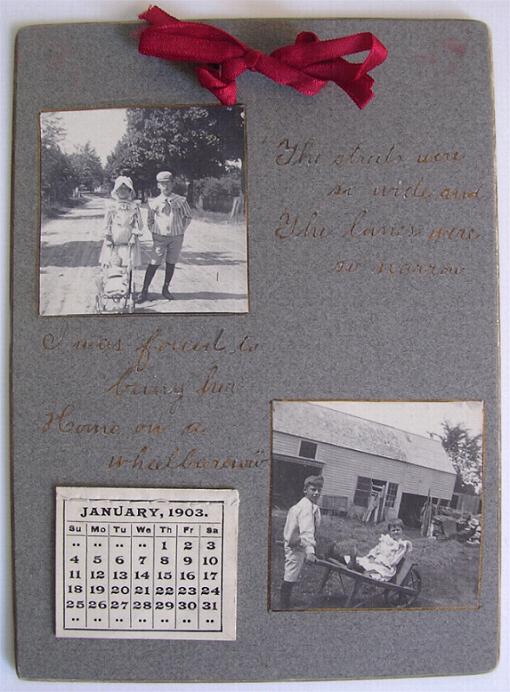 "The streets were
so wide and
The lanes were
so narrow
I was forced to
bring her
Home on a
wheelbarrow"
JANUARY, 1903.
Su Mo Tu We Th Fr Sa
•• •• •• •• 1 2 3
4 5 6 7 8 9 10
11 12 13 14 15 16 17
18 19 20 21 22 23 24
25 26 27 28 29 30 31
•• •• •• •• •• •• ••